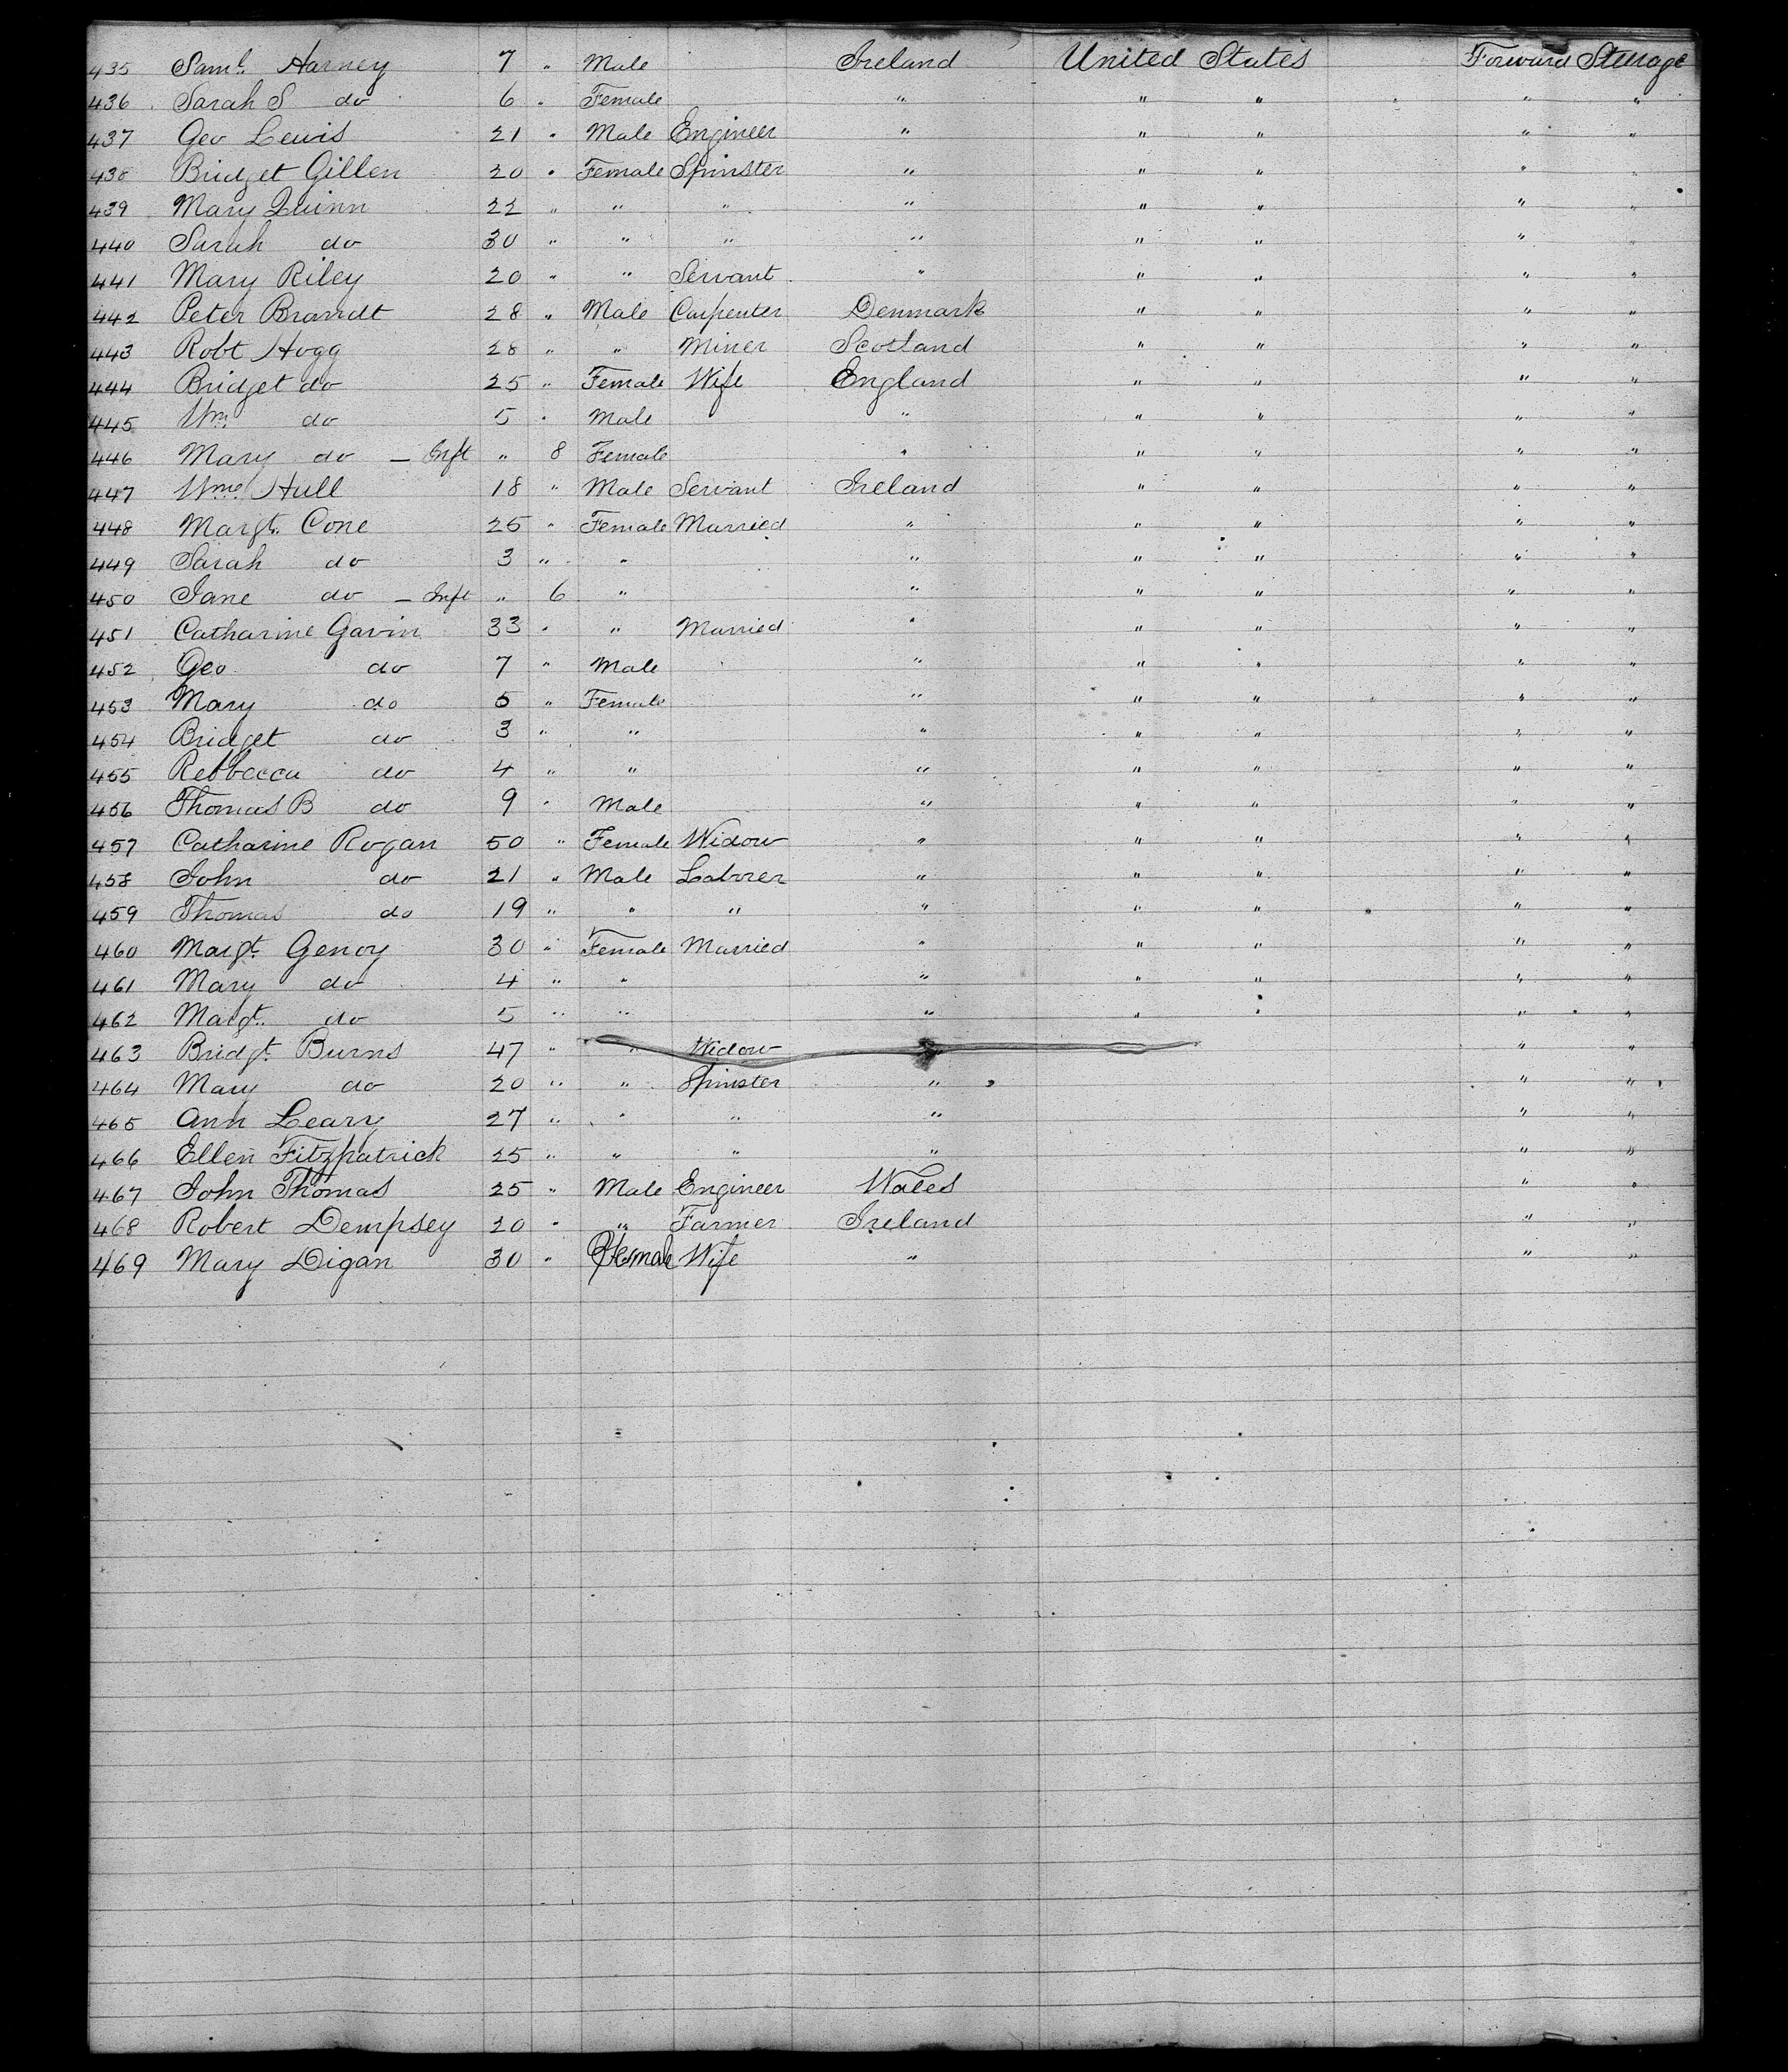 435 Saml. Harney 7 " Male Ireland United States Forward Steerage
436 Sarah S do 6 " Female " " " " "
437 Geo Lewis 21 " Male Engineer " " " " "
438 Bridget Gillen 20 " Female Spinster " " " " "
439 Mary Quinn 22 " " " " " " " "
440 Sarah do 30 " " " " " " " "
441 Mary Riley 20 " " Servant " " " " "
442 Peter Brandt 28 " Male Carpenter Denmark " " " "
443 Robt Hogg 28 " " Miner Scotland " " " "
444 Bridget do 25 " Female Wife England " " " "
445 Wm do 5 " Male " " " " "
446 Mary do - Inft " 8 Female " " " " "
447 Wm Hull 18 " Male Servant Ireland " " " "
448 Margt. Cone 25 " Female Married " " " " "
449 Sarah do 3 " " " " " " "
450 Jane do - Inft " 6 " " " " " "
451 Catharine Gavin 33 " " Married " " " " "
452 Geo do 7 " Male " " " " "
453 Mary do 5 " Female " " " " "
454 Bridget do 3 " " " " " " "
455 Rebbecca do 4 " " " " " " "
456 Thomas B do 9 " Male " " " " "
457 Catharine Rogan 50 " Female Widow " " " " "
458 John do 21 " Male Laborer " " " " "
459 Thomas do 19 " " " " " " " "
460 Margt. Genoy 30 " Female Married " " " " "
461 Mary do 4 " " " " " " "
462 Margt. do 5 " " " " " " "
463 Bridgt. Burns 47 " " Widow " " "
464 Mary do 20 " " Spinster " " "
465 Ann Leary 27 " " " " " "
466 Ellen Fitzpatrick 25 " " " " " "
467 John Thomas 25 " Male Engineer Wales " "
468 Robert Dempsey 20 " " Farmer Ireland " "
469 Mary Digan 30 " Female Wife " " "